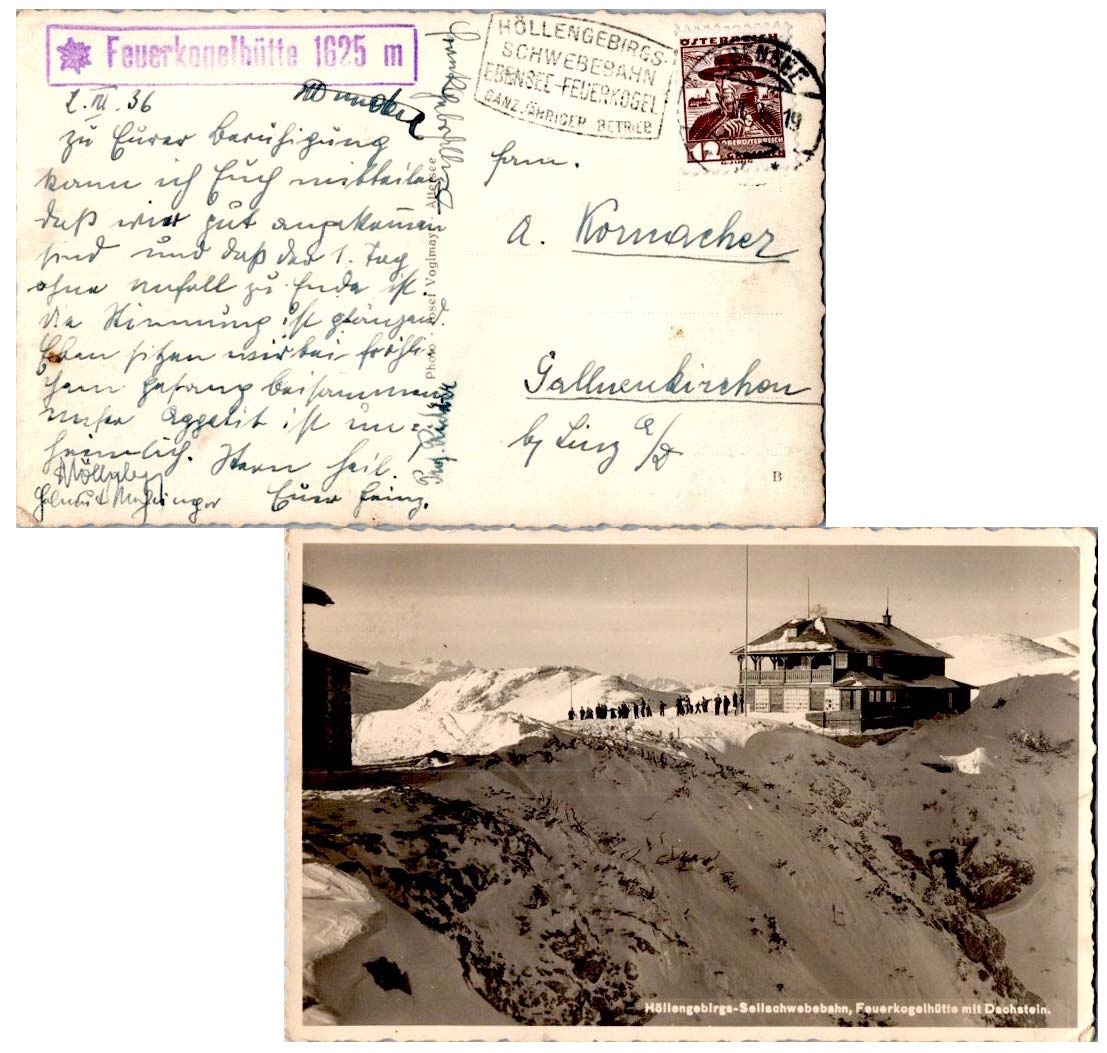 Feuerkogelhütte 1625 m
2. III. 36
zu Eurer Beruhigung
kann ich Euch mitteilen
daß wir gut angekommen
sind und daß der 1. Tag
ohne Unfall zu Ende ist.
die Stimmung ist glänzend.
Eben sitzen wir bei fröhli-
chem Gesang beisammen
unser Appetit ist un=
heimlich. Heil.
Helmut
Euer Heinz.
Photo - Josef Voglmayr, Attersee
HÖLLENGEBIRGS-
SCHWEBEBAHN
EBENSEE-FEUERKOGEL
GANZJÄHRIGER BETRIEB
ÖSTERREICH
12 OBERÖSTERREICH
GROSCHEN
EBENSEE
19
Fam.
A. Kornacher
Gallneukirchen
bei Linz a/D
B
Höllengebirgs-Seilschwebebahn, Feuerkogelhütte mit Dachstein.